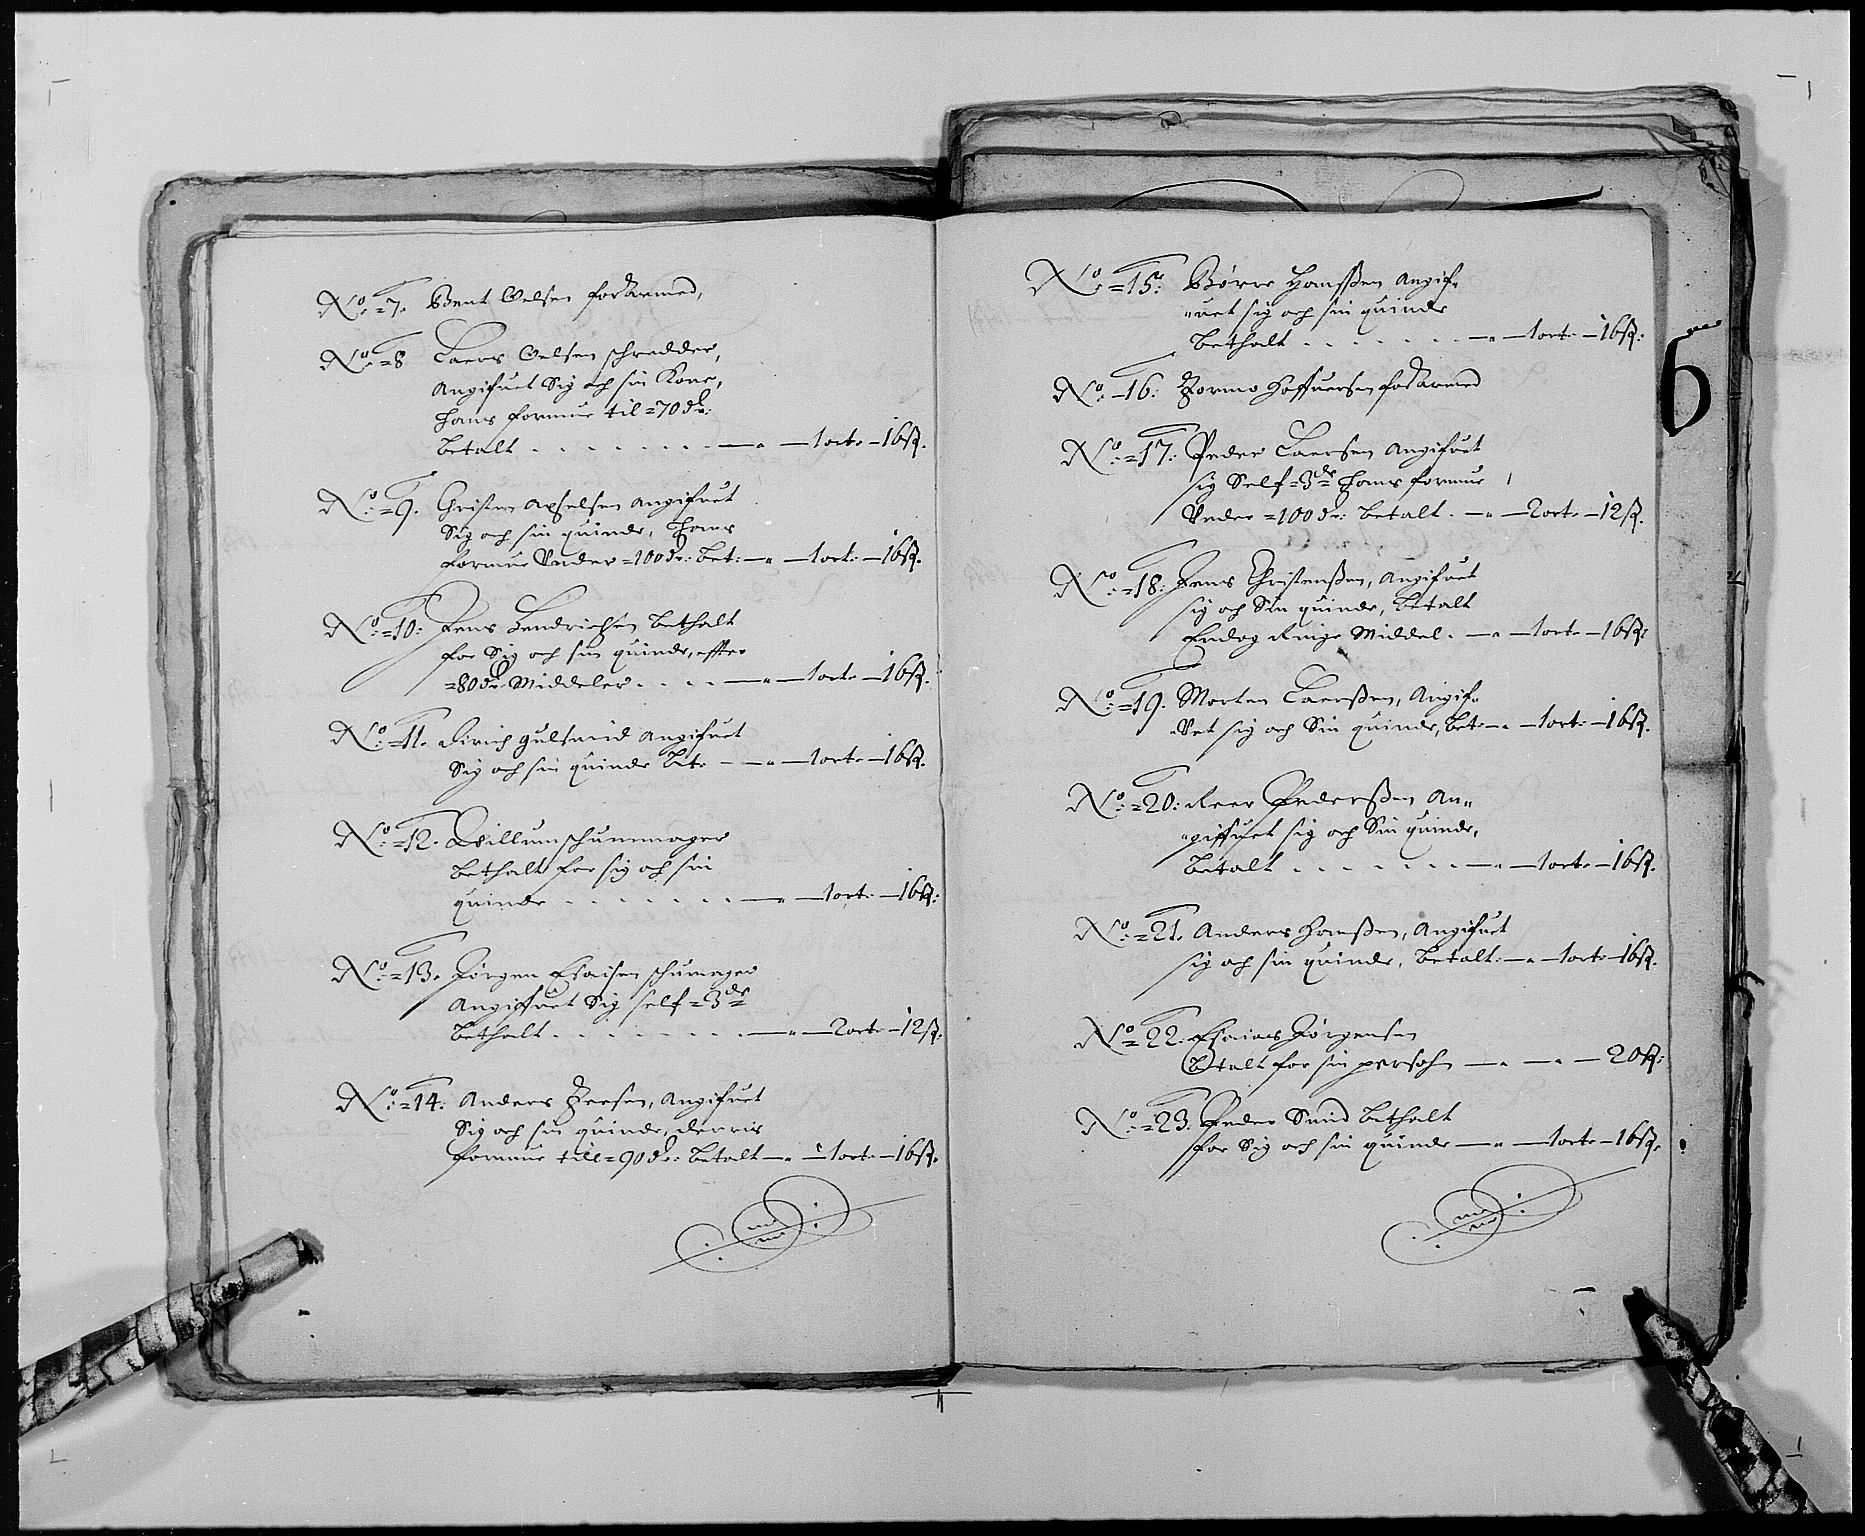 No: =7. Bent Oelsen forarmed,
No: =8 Laers Oelsen schredder,
Angifuet Sig och sin Kone,
hans formue til =70 dr:
betalt . . . . . . . — " — 1 ort — 16 sk.
No: =9. Christen Axelsen angifuet
Sig och sin quinde, hans
formue Under =100 dr: bet: — " — 1 ort: — 16 sk.
No: =10: Jens Hendrichsen bethalt
for Sig och sin quinde, effter
=80 dr: Middeler . . . . — " — 1 ort — 16 sk.
No: =11. Dirich gulsmid angifuet
Sig och sin quinde bet. — " — 1 ort — 16 sk.
No: =12. Willum schuemager
bethalt for sig och sin
quinde . . . . . . . — " — 1 ort — 16 sk:
No: =13. Jørgen Esaisen schumager
Angiffuet Sig self =3de
bethalt . . . . . . . — " — 2 ort — 12 sk.
No: =14: Anders Iversen, Angifuet
Sig och sin quinde, derris
formue till =90 dr: betalt — " — 1 ort — 16 sk.
No: =15: Børre Hanssen Angif=
"uet sig och sin quinde
bethalt . . . . . . . — " — 1 ort — 16 sk:
6
No: —16: Tormo forarmed
No: =17: Peder Laersen Angifuet
sig Self =3de hans formue
Under =100 dr: betalt. — " — 2 ort — 12 sk.
No: =18: Jens Christenßen, Angifuet
sig och Sin quinde, betalt
Endog Ringe Middel. — " — 1 ort — 16 sk:
No: =19. Morten Laerßen, Angif=
Vet sig och Sin quinde, bet — " — 1 ort — 16 sk.
No: =20: Pederßen An=
"giffuet sig och Sin quinde,
betalt . . . . . . . — " — 1 ort — 16 sk.
No: =21. Anders Hanßen, Angifuet
sig och sin quinde, betalt: — " — 1 ort — 16 sk.
No: =22: Esaias Jørgensen
betalt for sin persohn — " — " — 20 sk:
No: =23: Peder Smid bethalt
for Sig och sin quinde — " — 1 ort — 16 sk.